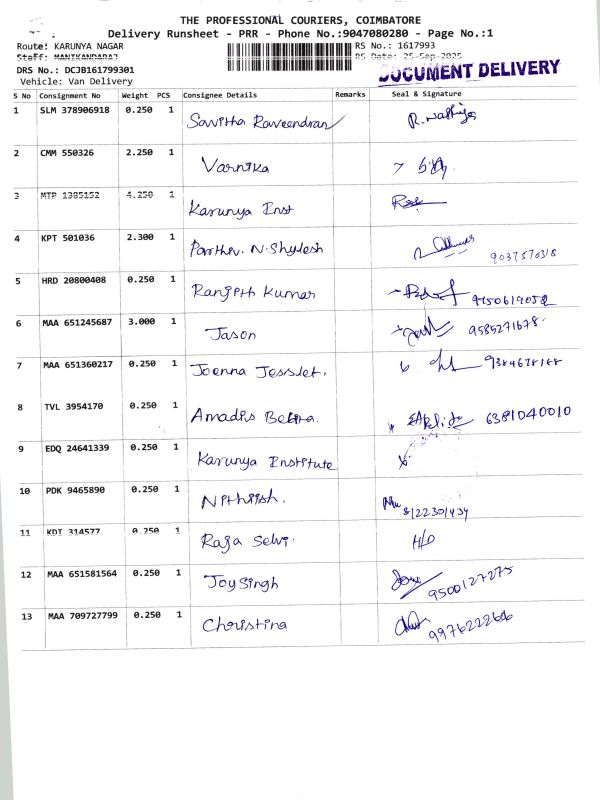 THE PROFESSIONAL COURIERS, COIMBATORE
Delivery Runsheet - PRR - Phone No.:9047080280 - Page No.:1
Route: KARUNYA NAGAR RS No.: 1617993
Staff: MANIKANDARAJ RS Date: 25-Sep-2025
DRS No.: DCJB161799301 DOCUMENT DELIVERY
Vehicle: Van Delivery
S No Consignment No Weight PCS Consignee Details Remarks Seal & Signature
1 SLM 378906918 0.250 1 Savitha Raveendran
2 CMM 550326 2.250 1 Varnika
3 MTP 1385152 4.250 1 Karunya Inst
4 KPT 501036 2.300 1 Parthiv. N. Shylesh
5 HRD 20800408 0.250 1 Ranjith Kumar
6 MAA 651245687 3.000 1 Jason 9585271678
7 MAA 651360217 0.250 1 Joenna Jesslet.
8 TVL 3954170 0.250 1 Amadis Behra. 6381040010
9 EDQ 24641339 0.250 1 Karunya Institute
10 PDK 9465890 0.250 1 Nithish. 8122301439
11 KDT 314577 0.250 1 Raja Selvi. H/D
12 MAA 651581564 0.250 1 Joy Singh 9500127275
13 MAA 709727799 0.250 1 Christina